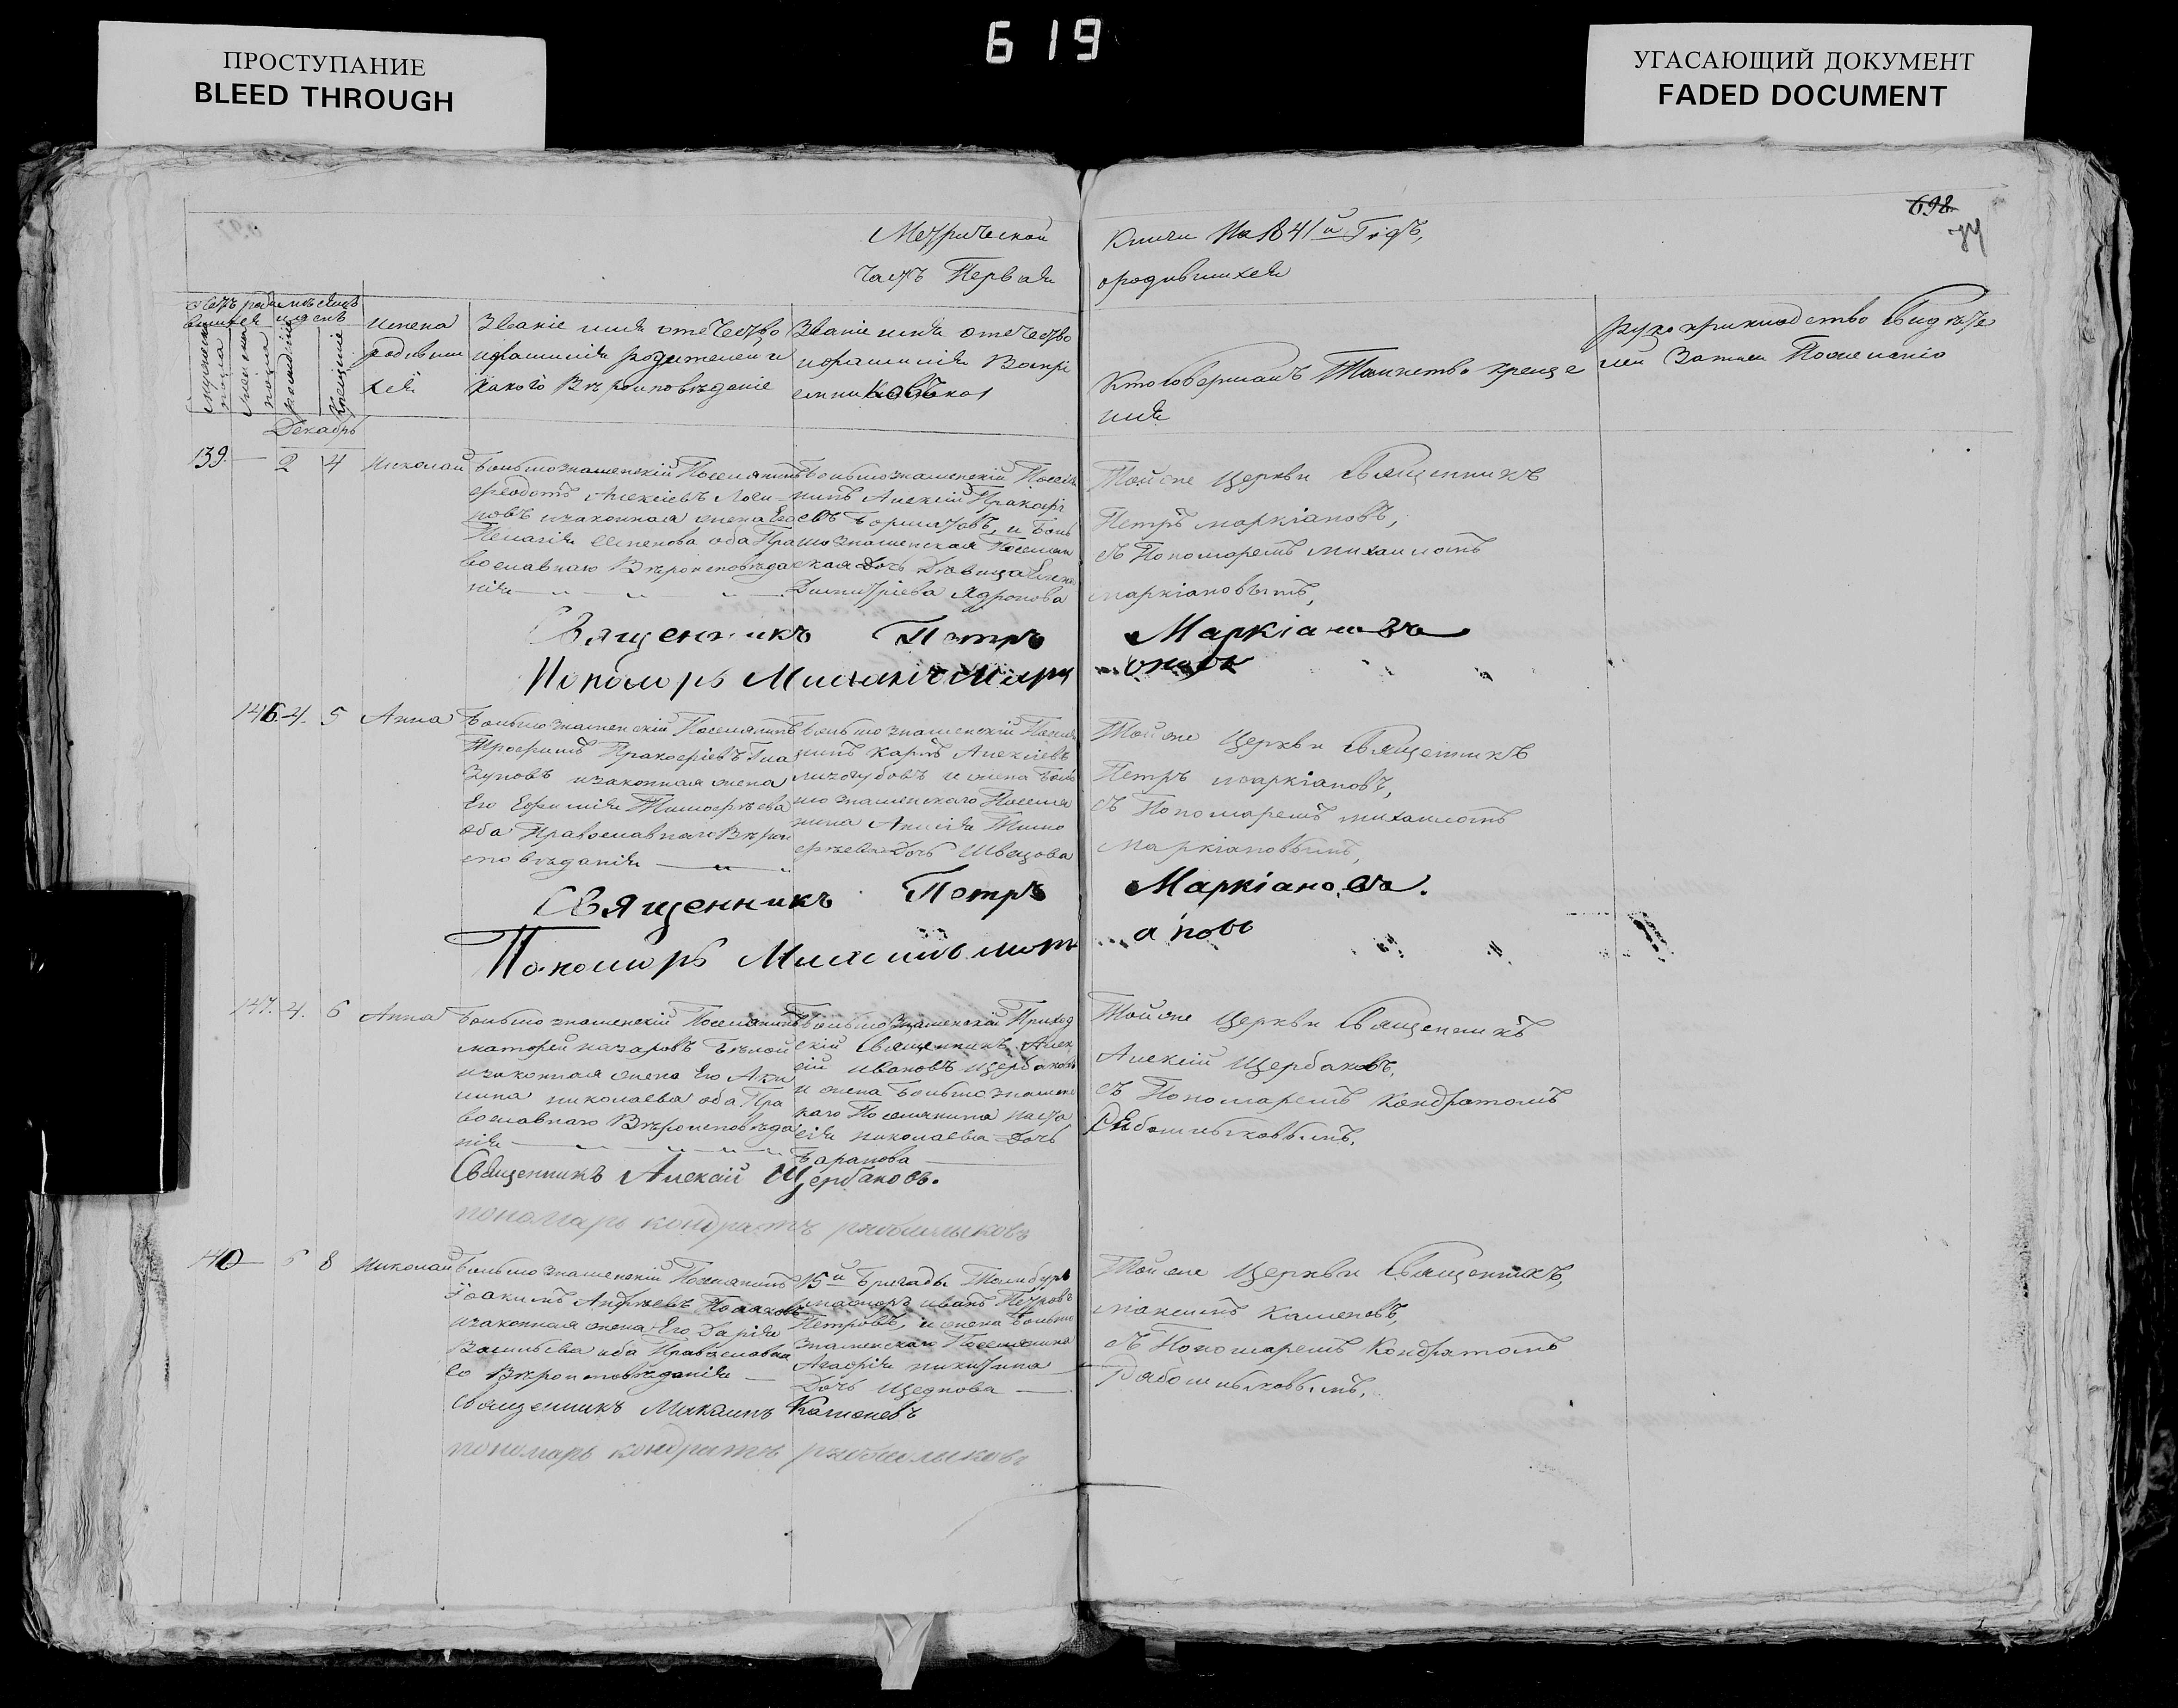 619
ПРОСТУПАНИЕ
BLEED THROUGH
УГАСАЮЩИЙ ДОКУМЕНТ
FADED DOCUMENT
698
Метрической Книги На 1841й Годъ,
часть Первая ородившихся
Имена
родивши
хся
Званіе имя отечество
ифамилія родителей и
какого Вѣроисповѣданіе
Званіе имя отечество
ифамилія Воспрі
емниковъ
Ктосовершалъ Таинство креще
нія
Рукоприкладство Свидѣте
лей
Декабрь
139 — 2 4 Николай
Большознаменскій Поселянинъ
Ѳеодотъ Алексіевъ Логи
новъ изаконная жена Его
Пелагія Семенова оба Пра
вославнаго Вѣроисповѣда
нія
Большознаменскій Поселя
нинъ Алексій Пракофі
евъ и Боль
шознаменская Поселян
ская Дочь Дѣвица Елена
Димитріева Ядронова
Тойже Церкви Священникъ
Петръ маркіановъ,
съ Пономаремъ михаиломъ
маркіановымъ,
Священникъ Петръ Маркіановъ
Пономарь Михаилъ
146 4. 5 Анна
Большознаменскій Поселянинъ
Трофимъ Пракофіевъ Гла
зуновъ изаконная жена
Его Ефимія Тимофѣева
оба Православнаго Вѣрои
сповѣданія
Большознаменскій Поселя
нинъ Карпъ Алексіевъ
лизогубовъ и жена Боль
шознаменскаго Поселя
нина Анисія Тимо
фѣева Дочь Швецова
Тойже Церкви Священникъ
Петръ маркіановъ,
съ Пономаремъ михаиломъ
маркіановымъ,
Священникъ Петръ Маркіановъ.
Пономарь Михаилъ
147. 4. 6 Анна
Большознаменскій Поселянинъ
матфей назаровъ Бѣлой
изаконная жена Его Аки
лина николаева оба Пра
вославнаго Вѣроисповѣда
нія
Большознаменскій Приход
скій Священникъ Алек
сій ивановъ Щербаковъ
и жена Большознаменс
каго Поселянина Наста
сія николаева Дочь
Баранова
Тойже Церкви Священникъ
Алексій Щербаковъ,
съ Пономаремъ Кондратомъ
Священникъ Алексій Щербаковъ.
пономарь кондратъ
140 — 6 8 Николай
Большознаменскій Поселянинъ
Іоакимъ Андреевъ Поляковъ
изаконная жена Его Дарія
Васильева оба Православна
го Вѣроисповѣданія
15й Бригады Тамбуръ
мажоръ иванъ Петровъ
Петровъ, и жена Больше
знаменскаго Поселянина
Агафія никитина
Дочь Щеднова
Тойже Церкви Священникъ,
максимъ Каменевъ,
съ Пономаремъ Кондратомъ
Священникъ Максимъ Каменевъ
пономарь кондратъ